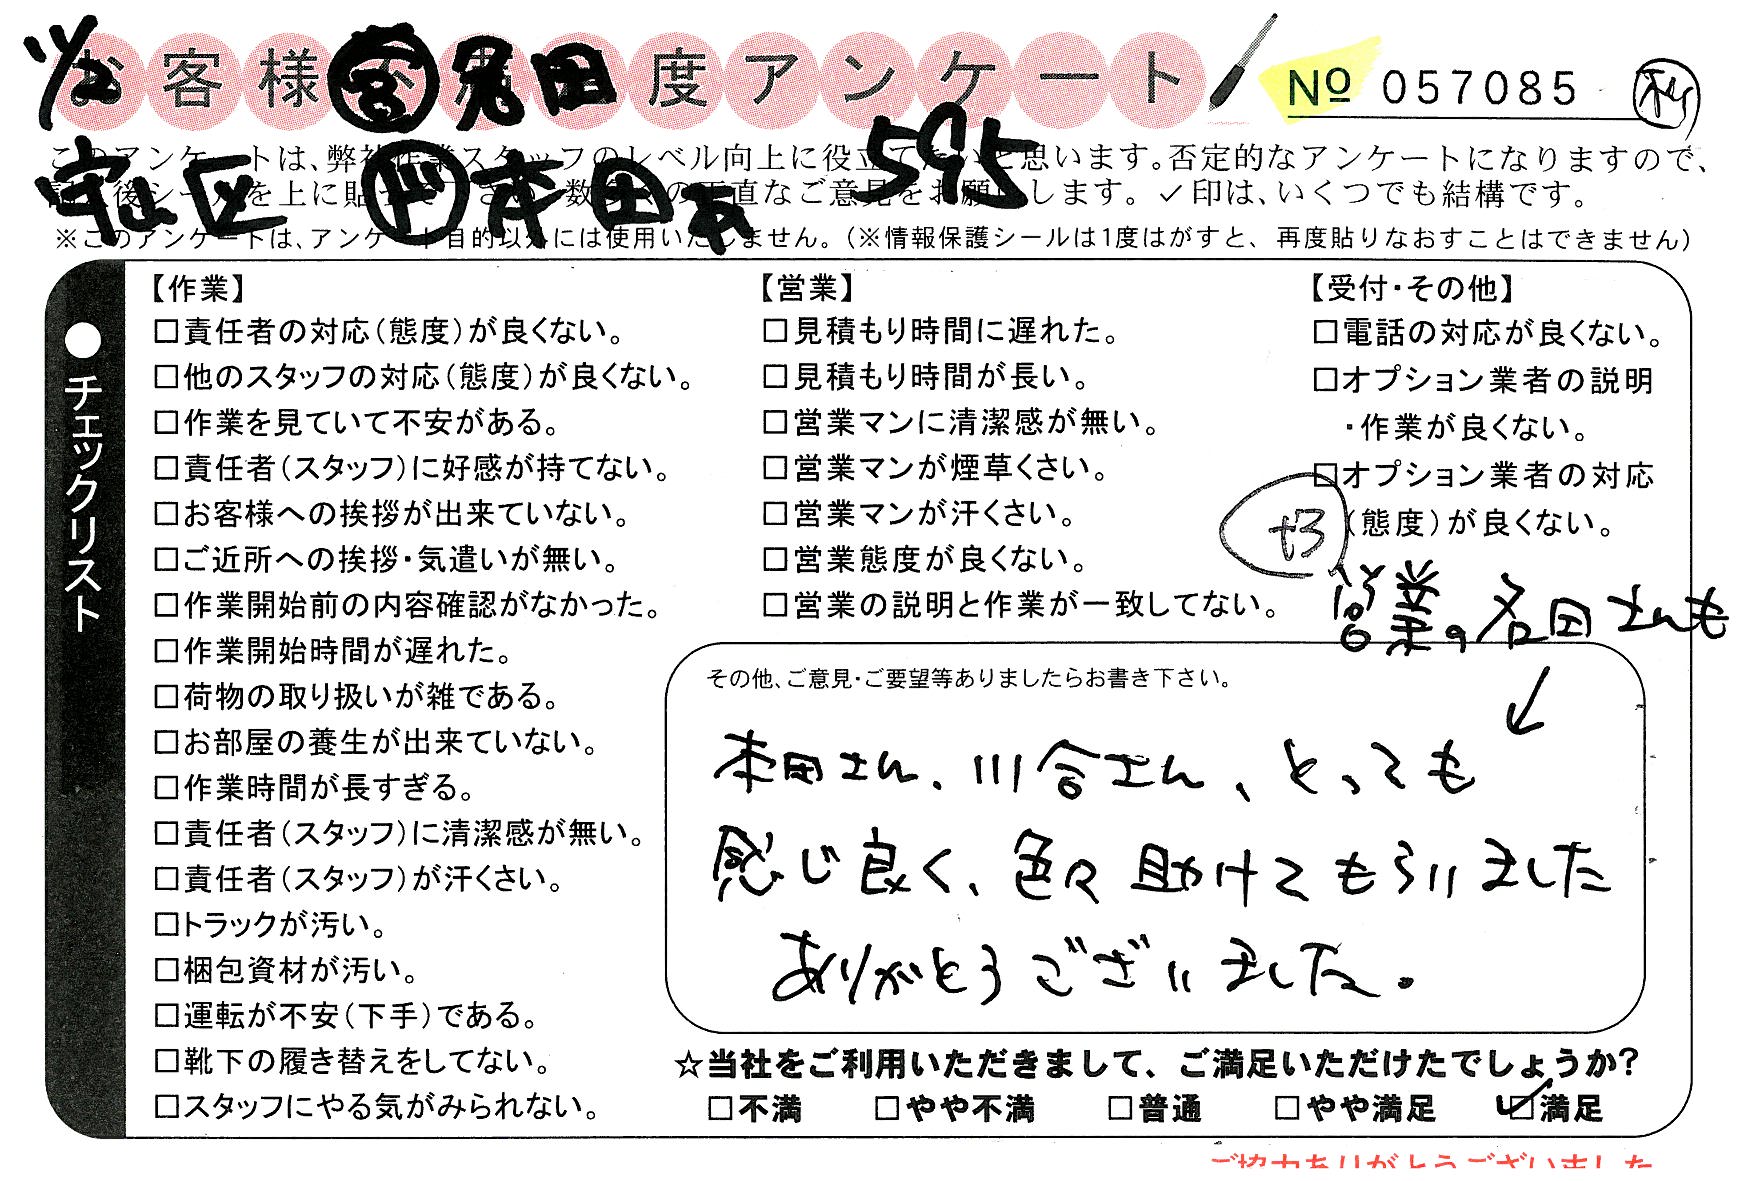 お客様不満度アンケート
№ 057085
守山区 本田 595
このアンケートは、弊社作業スタッフのレベル向上に役立てたいと思います。否定的なアンケートになりますので、
記入後シールを上に貼って下さい。数多くの正直なご意見をお願いします。✓印は、いくつでも結構です。
※このアンケートは、アンケート目的以外には使用いたしません。（※情報保護シールは1度はがすと、再度貼りなおすことはできません）
●チェックリスト
【作業】
□責任者の対応（態度）が良くない。
□他のスタッフの対応（態度）が良くない。
□作業を見ていて不安がある。
□責任者（スタッフ）に好感が持てない。
□お客様への挨拶が出来ていない。
□ご近所への挨拶・気遣いが無い。
□作業開始前の内容確認がなかった。
□作業開始時間が遅れた。
□荷物の取り扱いが雑である。
□お部屋の養生が出来ていない。
□作業時間が長すぎる。
□責任者（スタッフ）に清潔感が無い。
□責任者（スタッフ）が汗くさい。
□トラックが汚い。
□梱包資材が汚い。
□運転が不安（下手）である。
□靴下の履き替えをしてない。
□スタッフにやる気がみられない。
【営業】
□見積もり時間に遅れた。
□見積もり時間が長い。
□営業マンに清潔感が無い。
□営業マンが煙草くさい。
□営業マンが汗くさい。
□営業態度が良くない。
□営業の説明と作業が一致してない。
【受付・その他】
□電話の対応が良くない。
□オプション業者の説明
・作業が良くない。
□オプション業者の対応
（態度）が良くない。
+3
営業の名田さんも
↓
その他、ご意見・ご要望等ありましたらお書き下さい。
本田さん、川合さん、とっても
感じ良く、色々助けてもらいました
ありがとうございました。
☆当社をご利用いただきまして、ご満足いただけたでしょうか？
□不満 □やや不満 □普通 □やや満足 ☑満足
ご協力ありがとうございました